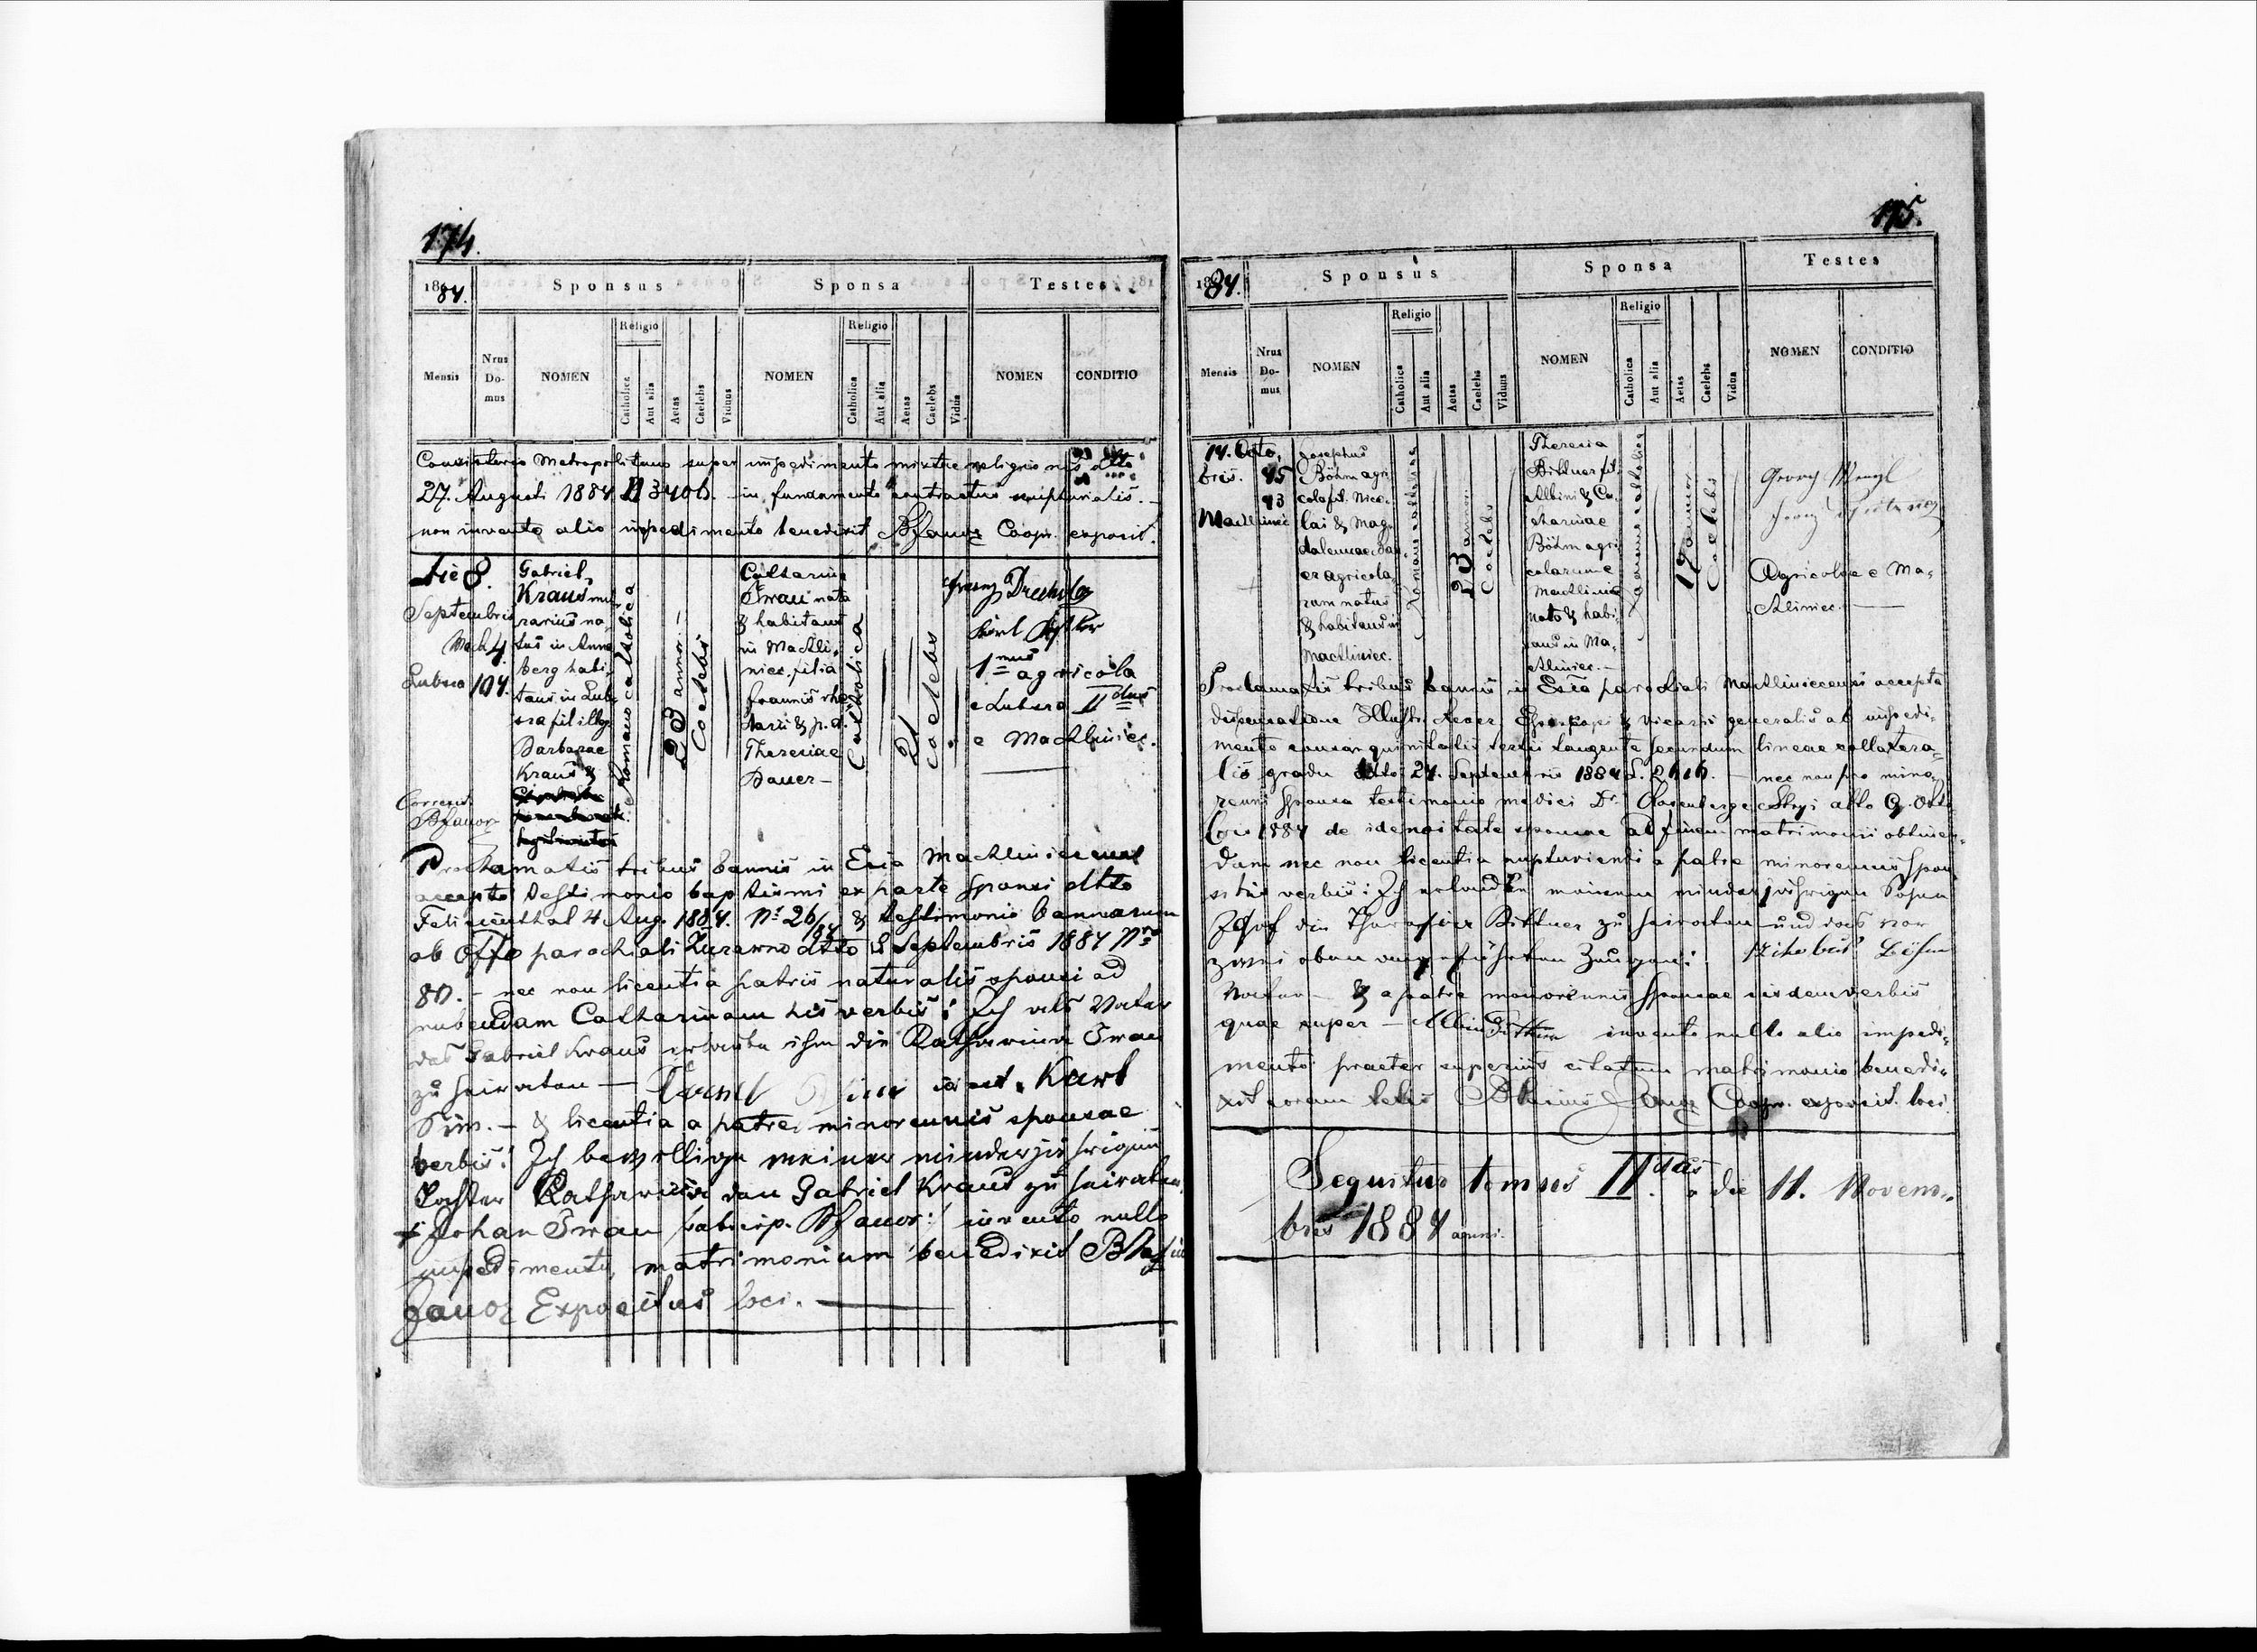 174.
1884.
Sponsus
Sponsa
Testes
Mensis
Nrus Do- mus
NOMEN
Religio
Catholica
Aut alia
Aetas
Caelebs
Viduus
NOMEN
Religio
Catholica
Aut alia
Aetas
Caelebs
Vidua
NOMEN
CONDITIO
Consistorio Metropolitano super impedimento mixtae religionis dtto
27. Augusti 1884 N 3406. in fundamento contractus scripturalis. —
non invento alio impedimento benedixit BJanor Coop. exposit.
die 8.
Septembris
Mach 4.
Lubsza 104.
Gabriel
Kraus mu-
rarius na-
tus in Anna
berg habi-
tans in Lub-
sza fil illeg.
Barbarae
Kraus &
Correxi
BJanor
Romano catholica
23 annor.
Coelebs
Catharina
Iwan nata
& habitans
in Machli-
niec, filia
Joannis rhe
darii & p.d.
Theresiae
Bauer —
Catholica
21
coelebs
Franz Drechsler
Karl
1mus agricola
e Lubsza IIdus
e Machliniec.
Proclamatis tribus bannis in Ecia Machliniecensi
accepto testimonio baptismi ex parte Sponsi dtto
Felicienthal 4 Aug. 1884. Nr 26/84 & testimonio bannorum
ab Offo parochiali Żurawno dtto 8 Septembris 1884 Nro
80. — nec non licentia patris naturalis sponsi ad
nubendam Catharinam his verbis: Ich als Vater
des Gabriel Kraus erlaube ihm die Katharina Iwan
zu heiraten — Karl
— & licentia a patre minorennis sponsae
verbis: Ich bewillige meiner minderjährigen
Tochter Katharina den Gabriel Kraus zu heiraten
Johan Iwan subscrip. BJanor: invento nullo
impedimento, matrimonium benedixit Blasius
Janor Expositus loci. —
175.
1884.
Sponsus
Sponsa
Testes
Mensis
Nrus Do- mus
NOMEN
Religio
Catholica
Aut alia
Aetas
Caelebs
Viduus
NOMEN
Religio
Catholica
Aut alia
Aetas
Caelebs
Vidua
NOMEN
CONDITIO
14. Octo-
bris.
Machliniec
45
43
Josephus
Böhm agri-
cola fil. Nico-
lai & Mag-
dalennae
agricola-
rum natus
& habitans in
Machliniec.
Romano catholicus
23 annor.
Coelebs
Theresia
Bittner fil.
Albini & Ca-
tharinae
Böhm agri
colarum e
Machliniec
nata & habi-
tans in Ma-
chliniec. —
Romano catholica
17 annor
Coelebs
Georg Wenzl
Franz
Agricolae e Ma-
chliniec. —
Proclamatis tribus bannis in Ecia parochiali Machliniecensi accepta
dispensatione Illustr. Rever. Episcopi & vicarii generalis ab impedi-
mento consanguinitatis tertii tangente secundum lineae collatera-
lis gradu dtto 24. Septembris 1884 L. — nec non pro mino-
renni sponsa testimonio medici Dr. Rosenberg e Stryj dtto 9. Octo
bris 1884 de idoneitate sponsae ad finem matrimonii obtinen-
dum nec non licentia nupturienti a patre minorennis spon
si his verbis: Ich erlaube meinem minderjährigen Sohne
Josef die Theresia Bittner zu heiraten und das vor
zwei oben angeführten Zeugen: Nikolaus Böhm
Vater — & a patre minorennis sponsae iisdem verbis
quae super — Albin Bittner invento nullo alio impedi-
mento praeter superius citatum matrimonio benedi-
xit coram testis Blasius Janor Coop. exposit. loci.
Sequitur tomus II.dus a die 11. Novem-
bris 1884 anni.